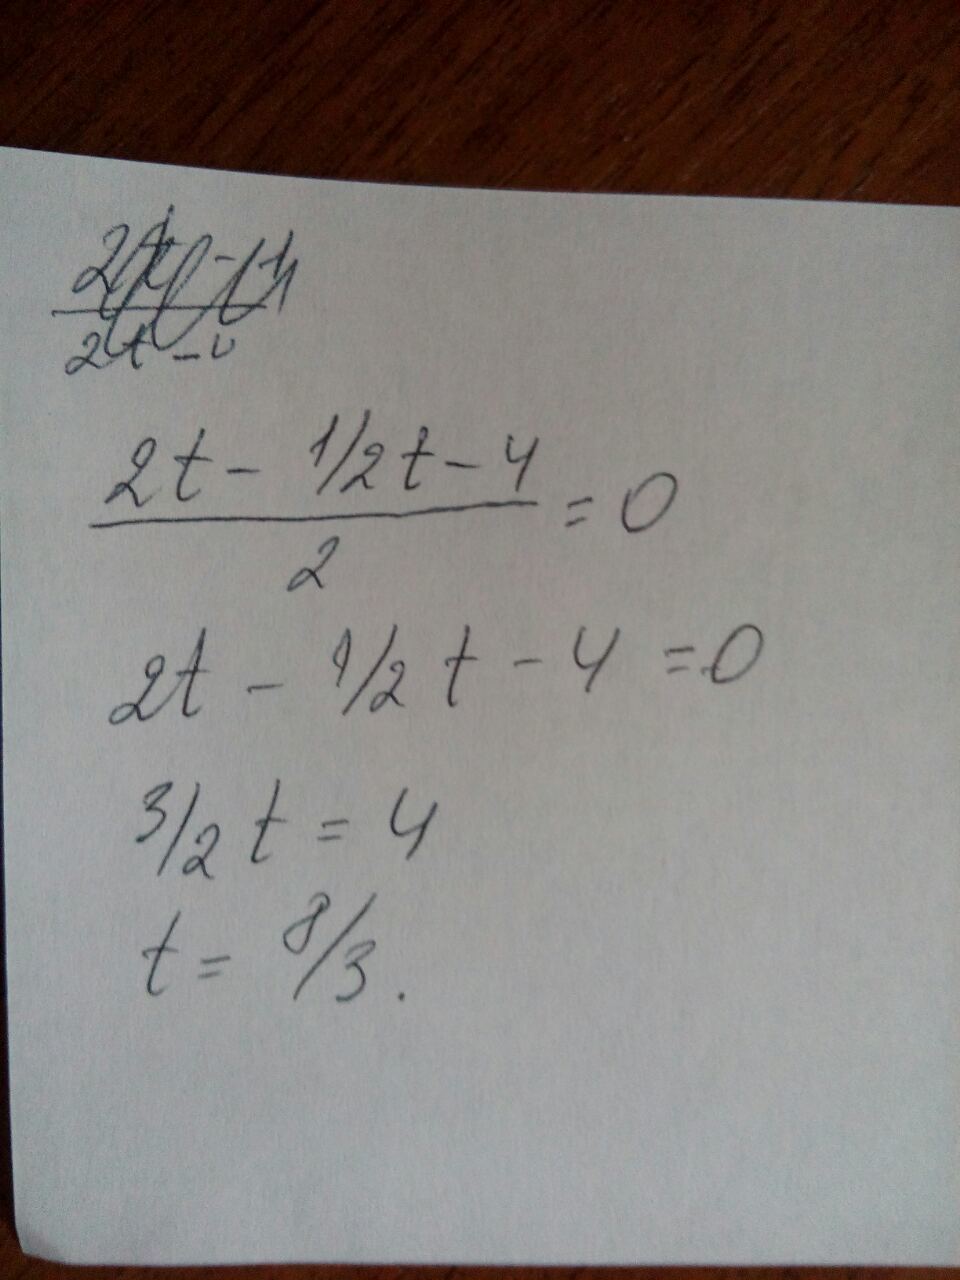 2t - 1/2t - 4
2
= 0
2t - 1/2 t - 4 = 0
3/2 t = 4
t = 8/3.